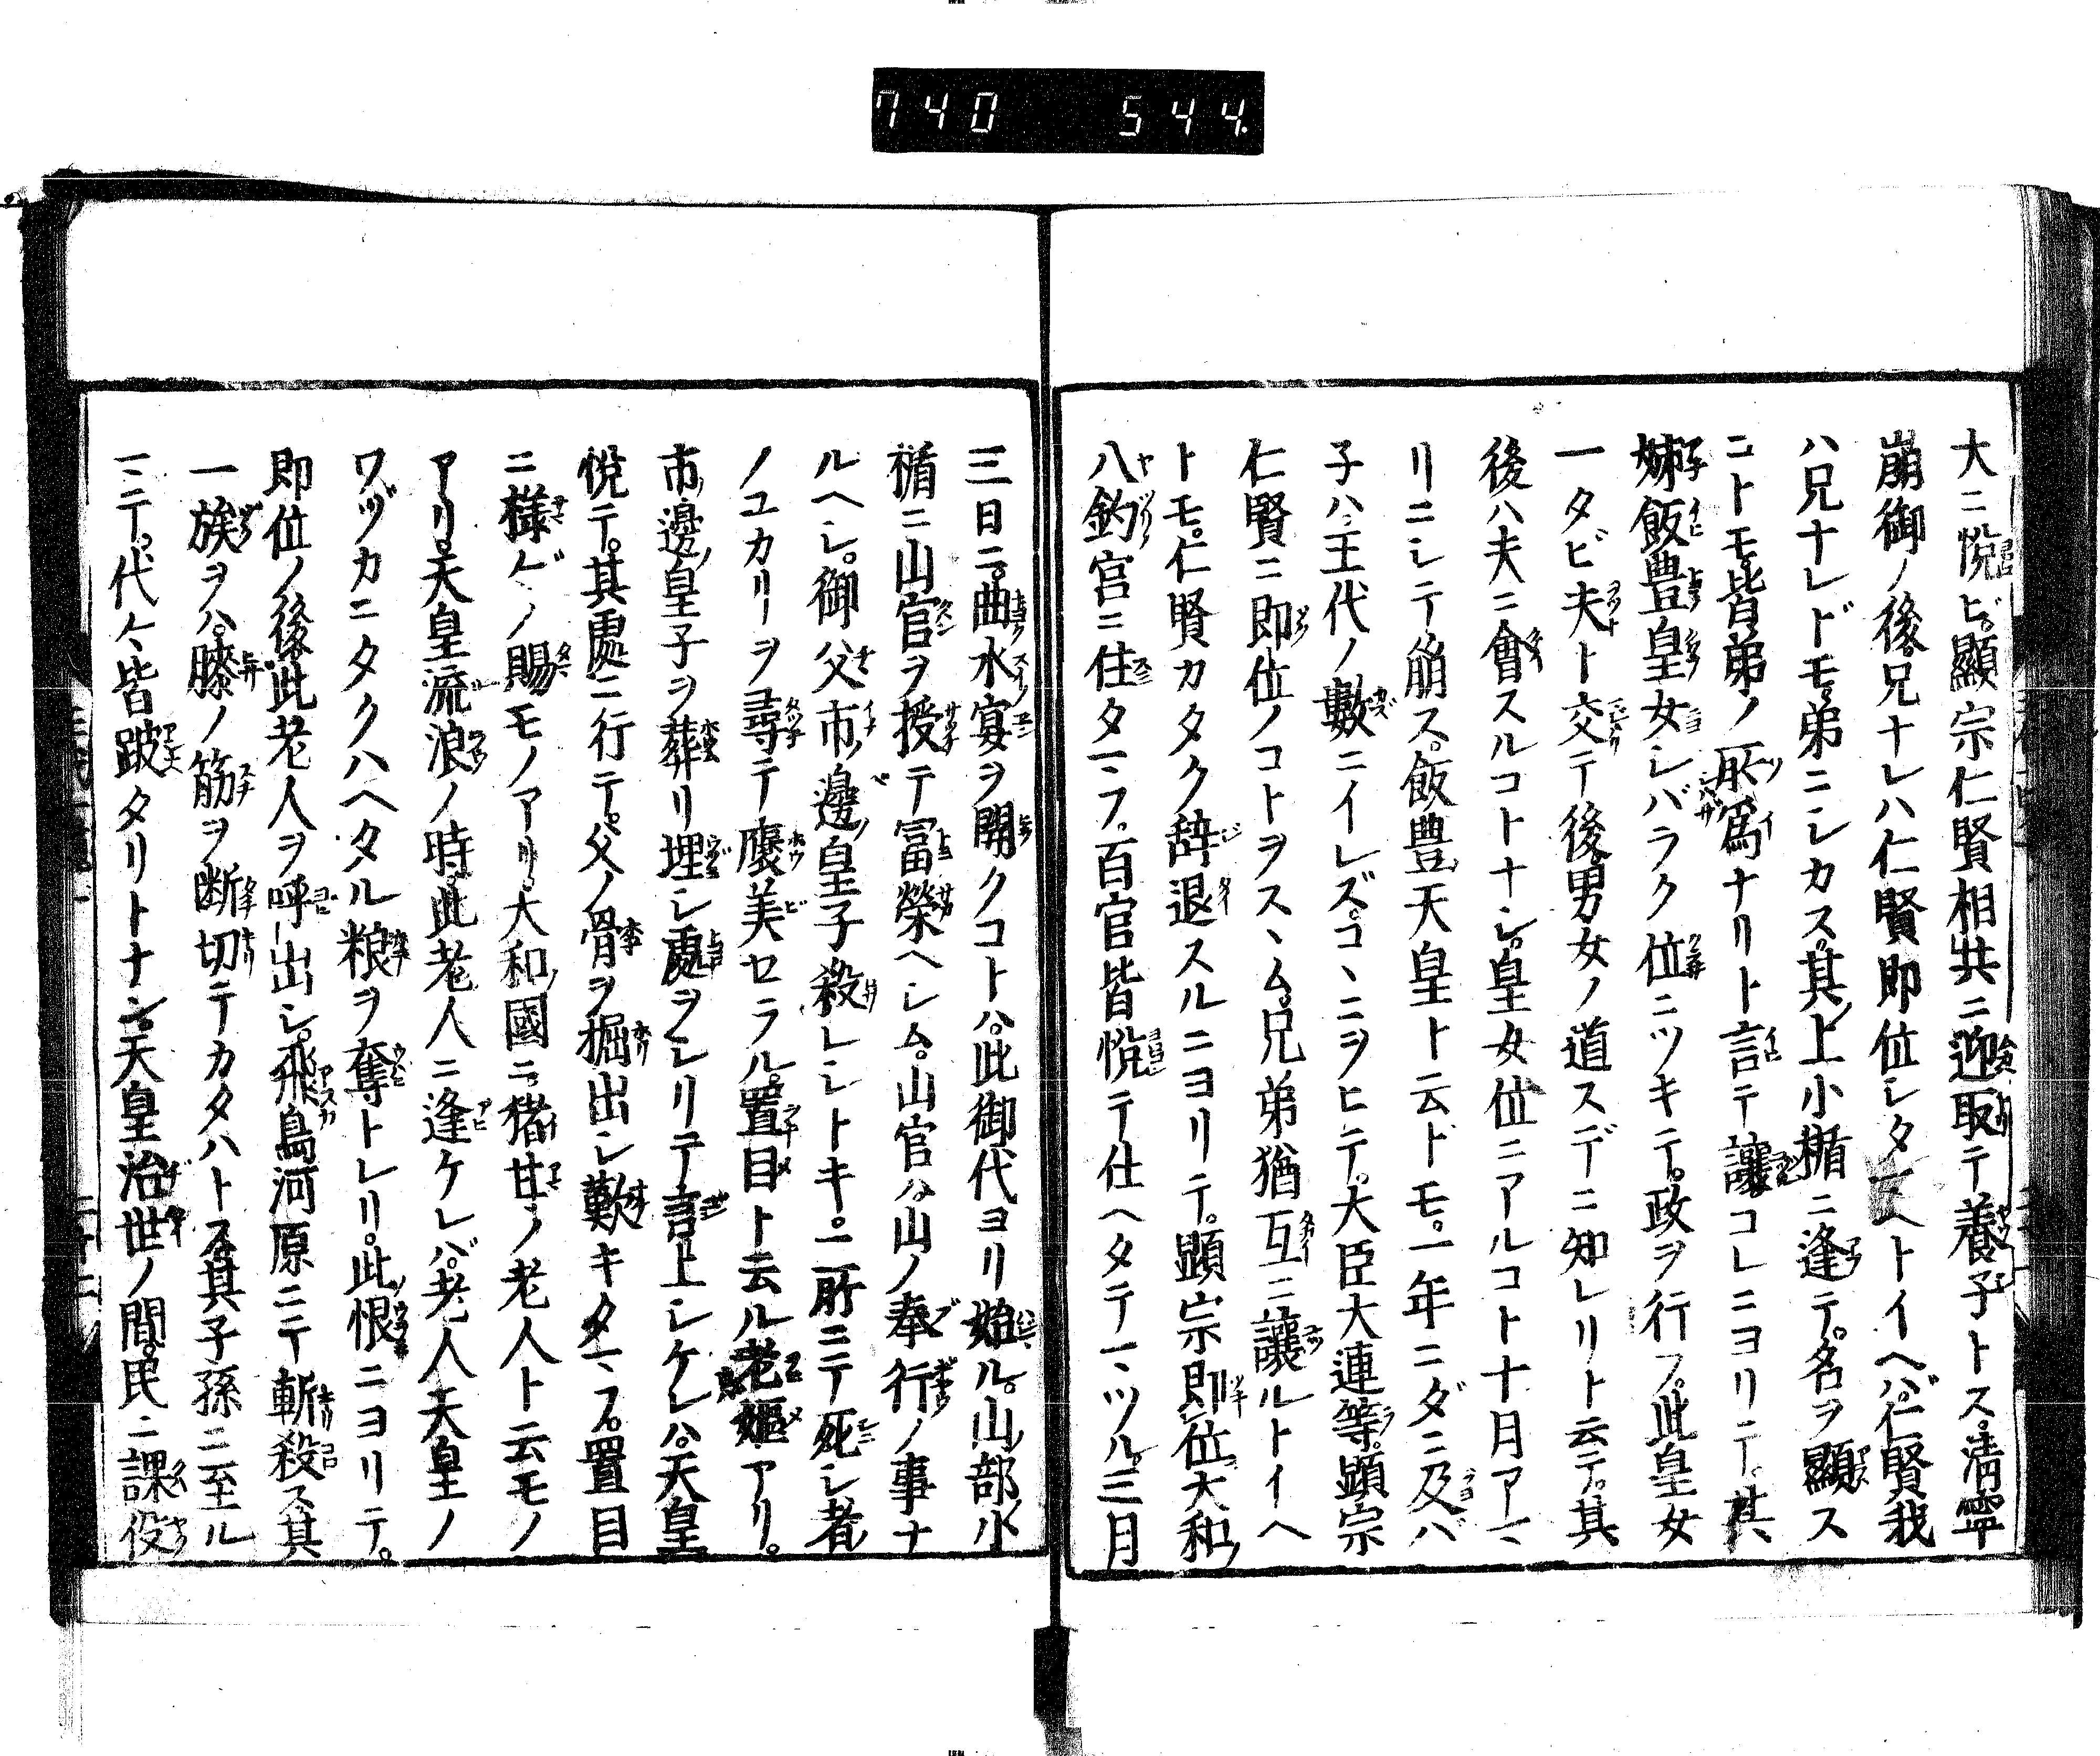 大ニ悦ビ。顯宗仁賢相共ニ迎取テ養子トス。清寧
崩御ノ後。兄ナレハ仁賢即位シタマヘトイヘバ。仁賢我
ハ兄ナレドモ。弟ニシカス。其上小楯ニ逢テ。名ヲ顯ス
コトモ。皆弟ノ所爲ナリト言テ讓。コレニヨリテ。其
姉飯豊皇女シバラク位ニツキテ。政ヲ行フ。此皇女
一タビ夫ト交テ後。男女ノ道スデニ知レリト云テ。其
後ハ夫ニ會スルコトナシ。皇女位ニアルコト十月アマ
リニシテ崩ス。飯豊天皇ト云ドモ。一年ニダニ及バ
子ハ王代ノ數ニイレズ。コヽニヲヒテ。大臣大連等。顕宗
仁賢ニ即位ノコトヲスヽム。兄弟猶互ニ讓ルトイヘ
トモ。仁賢カタク辞退スルニヨリテ。顕宗即位。大和
八釣宮ニ住タマフ。百官皆悦テ仕ヘタテマツル。三月
三日ニ。曲水宴ヲ開クコトハ。此御代ヨリ始ル。山部小
楯ニ山官ヲ授テ冨榮ヘシム。山官ハ。山ノ奉行ノ事ナ
ルヘシ。御父市邊皇子殺レシトキ。一所ニテ死シ者
ノユカリヲ尋テ褒美セラル。置目ト云ル老嫗アリ。
市邊皇子ヲ葬リ埋シ處ヲシリテ言上シケレハ。天皇
悦テ。其處ニ行テ。父ノ骨ヲ掘出シ歎キタマフ。置目
ニ樣〲ノ賜モノアリ。大和國ニ。猪甘ノ老人ト云モノ
アリ。天皇流浪ノ時。此老人ニ逢ケレバ。老人天皇ノ
ワヅカニタクハヘタル粮ヲ奪トレリ。此恨ニヨリテ。
即位ノ後此老人ヲ呼出シ。飛鳥河原ニテ斬殺ス。其
一族ヲハ。膝ノ筋ヲ断切テカタハトス。其子孫ニ至ル
マテ。代々皆跛タリトナン。天皇治世ノ間。民ニ課役
740 544